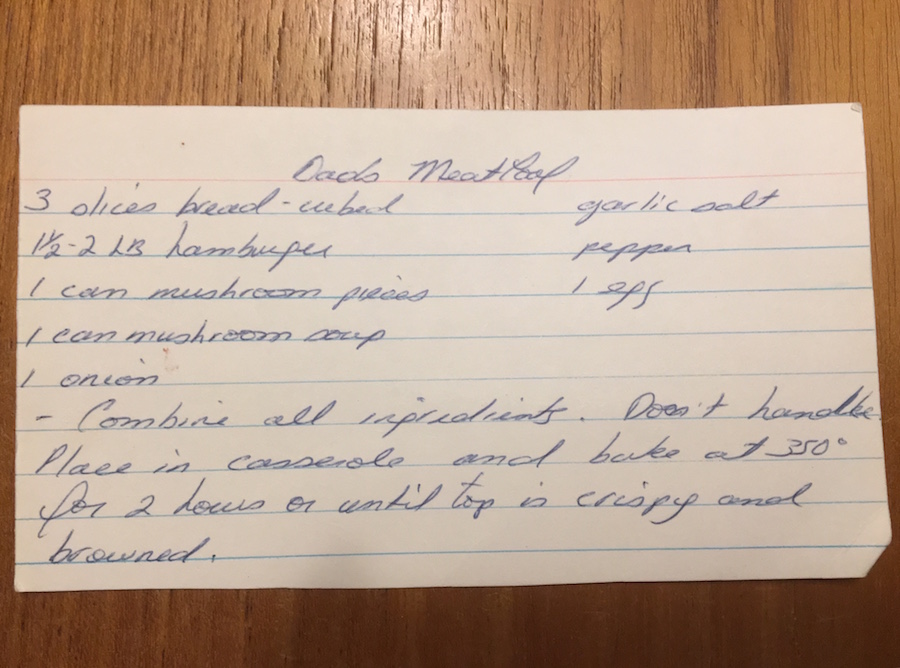 Dads Meatloaf
3 slices bread - cubed garlic salt
1½-2 LB hamburger pepper
1 can mushroom pieces 1 egg
1 can mushroom soup
1 onion
- Combine all ingredients. Don't handle.
Place in casserole and bake at 350°
for 2 hours or until top is crispy and
browned.